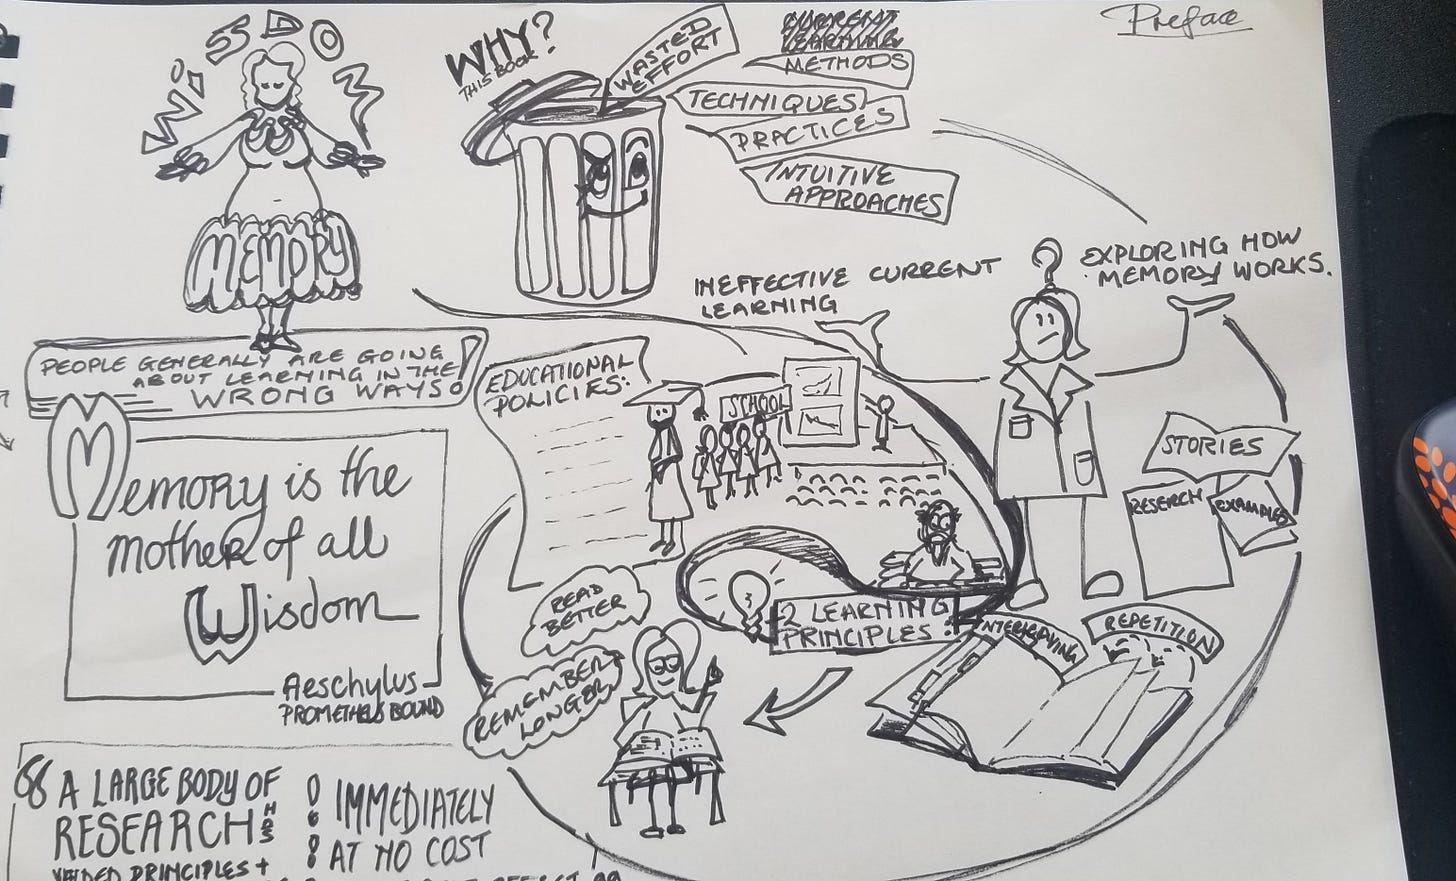 Preface
WISDOM
MEMORY
PEOPLE GENERALLY ARE GOING
ABOUT LEARNING IN THE
WRONG WAYS!
WHY?
THIS BOOK
WASTED
EFFORT
CURRENT
LEARNING
METHODS
TECHNIQUES
PRACTICES
INTUITIVE
APPROACHES
INEFFECTIVE CURRENT
LEARNING
?
EXPLORING HOW
MEMORY WORKS.
Memory is the
mother of all
Wisdom
Aeschylus
PROMETHEUS BOUND
EDUCATIONAL
POLICIES:
SCHOOL
STORIES
RESEARCH
EXAMPLES
2 LEARNING
PRINCIPLES:
INTERLEAVING
REPETITION
READ
BETTER
REMEMBER
LONGER
A LARGE BODY OF
RESEARCH HAS
PRINCIPLES +
IMMEDIATELY
AT NO COST